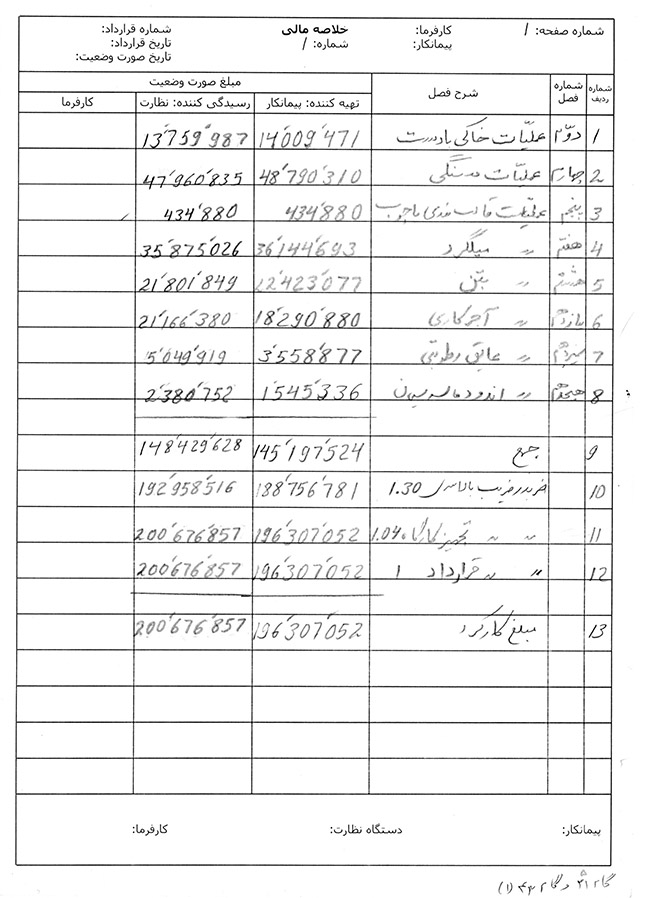 شماره صفحه: /
کارفرما:
پیمانکار:
خلاصه مالی
شماره: /
شماره قرارداد:
تاریخ قرارداد:
تاریخ صورت وضعیت:
شماره ردیف
شماره فصل
شرح فصل
مبلغ صورت وضعیت
تهیه کننده: پیمانکار
رسیدگی کننده: نظارت
کارفرما
1 دوّم عملیّات خاکی با دست 14'009'471 13'759'987
2 چهارم عملیّات سنگی 48'790'310 47'960'835
3 پنجم عملیّات قالب بندی با چوب 434'880 434'880
4 هفتم 〃 میلگرد 36'144'693 35'875'026
5 هشتم 〃 بتن 22'423'077 21'801'849
6 یازدهم 〃 آجرکاری 18'290'880 21'166'380
7 سیزدهم 〃 عایق رطوبتی 3'558'877 5'049'919
8 هجدهم 〃 اندود و 1'545'336 2'380'752
9 جمع 145'197'524 148'429'628
10 ضرب در ضریب بالاسری 1.30 188'756'781 192'958'516
11 〃 〃 تجهیز کارگاه 1.04 196'307'052 200'676'857
12 〃 〃 قرارداد 1 196'307'052 200'676'857
13 مبلغ کارکرد 196'307'052 200'676'857
پیمانکار:
دستگاه نظارت:
کارفرما: